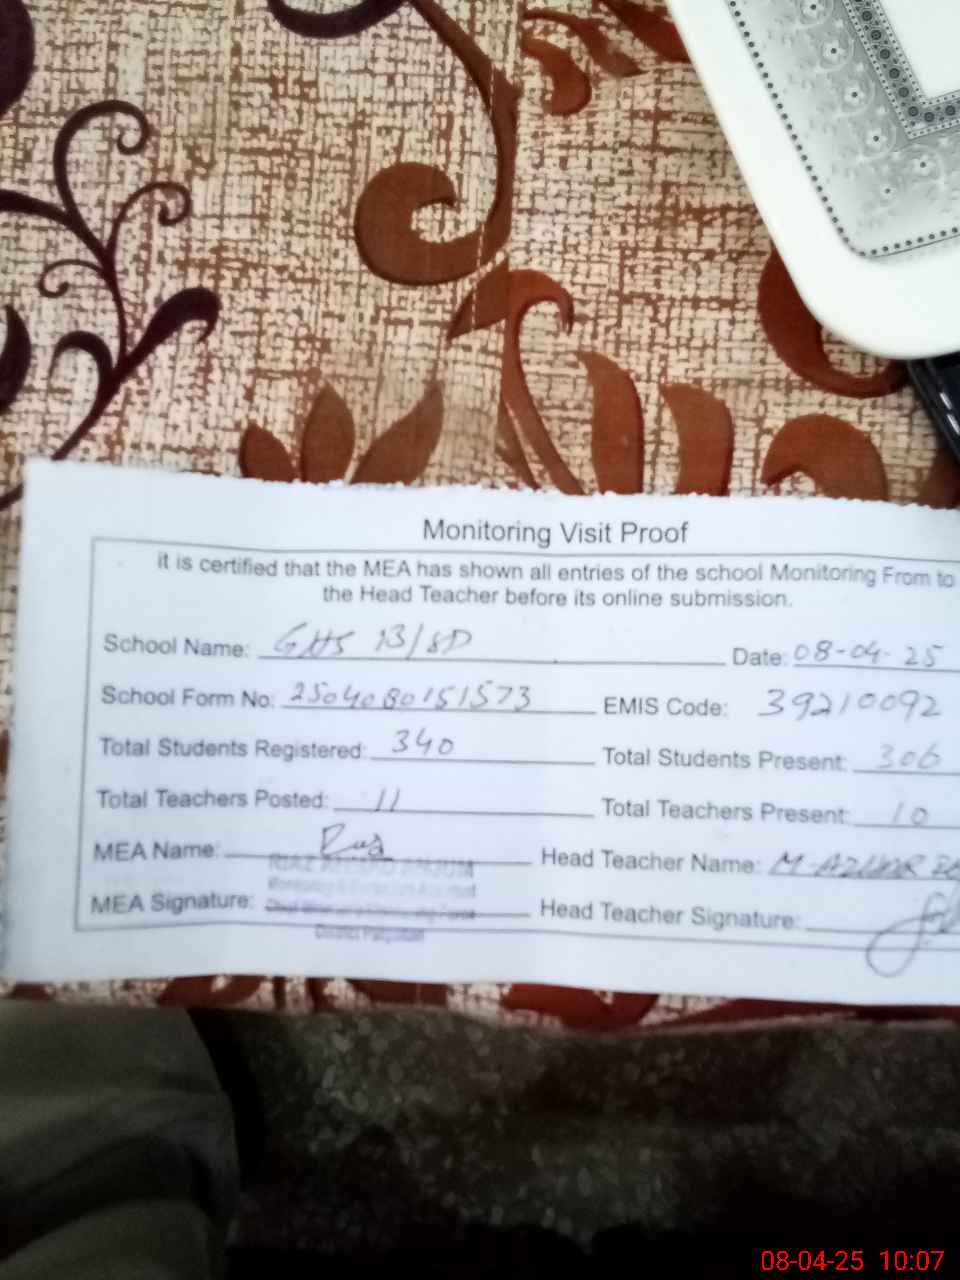 Monitoring Visit Proof
it is certified that the MEA has shown all entries of the school Monitoring From to
the Head Teacher before its online submission.
School Name: GHS 13/SP Date: 08-04-25
School Form No: 2504080151573 EMIS Code: 39210092
Total Students Registered: 340 Total Students Present: 306
Total Teachers Posted: 11 Total Teachers Present: 10
MEA Name: Head Teacher Name: M-AZHAR
RIAZ AHMAD ANJUM
Monitoring & Evaluation Assistant
MEA Signature: Head Teacher Signature:
District Pakpattan
08-04-25 10:07